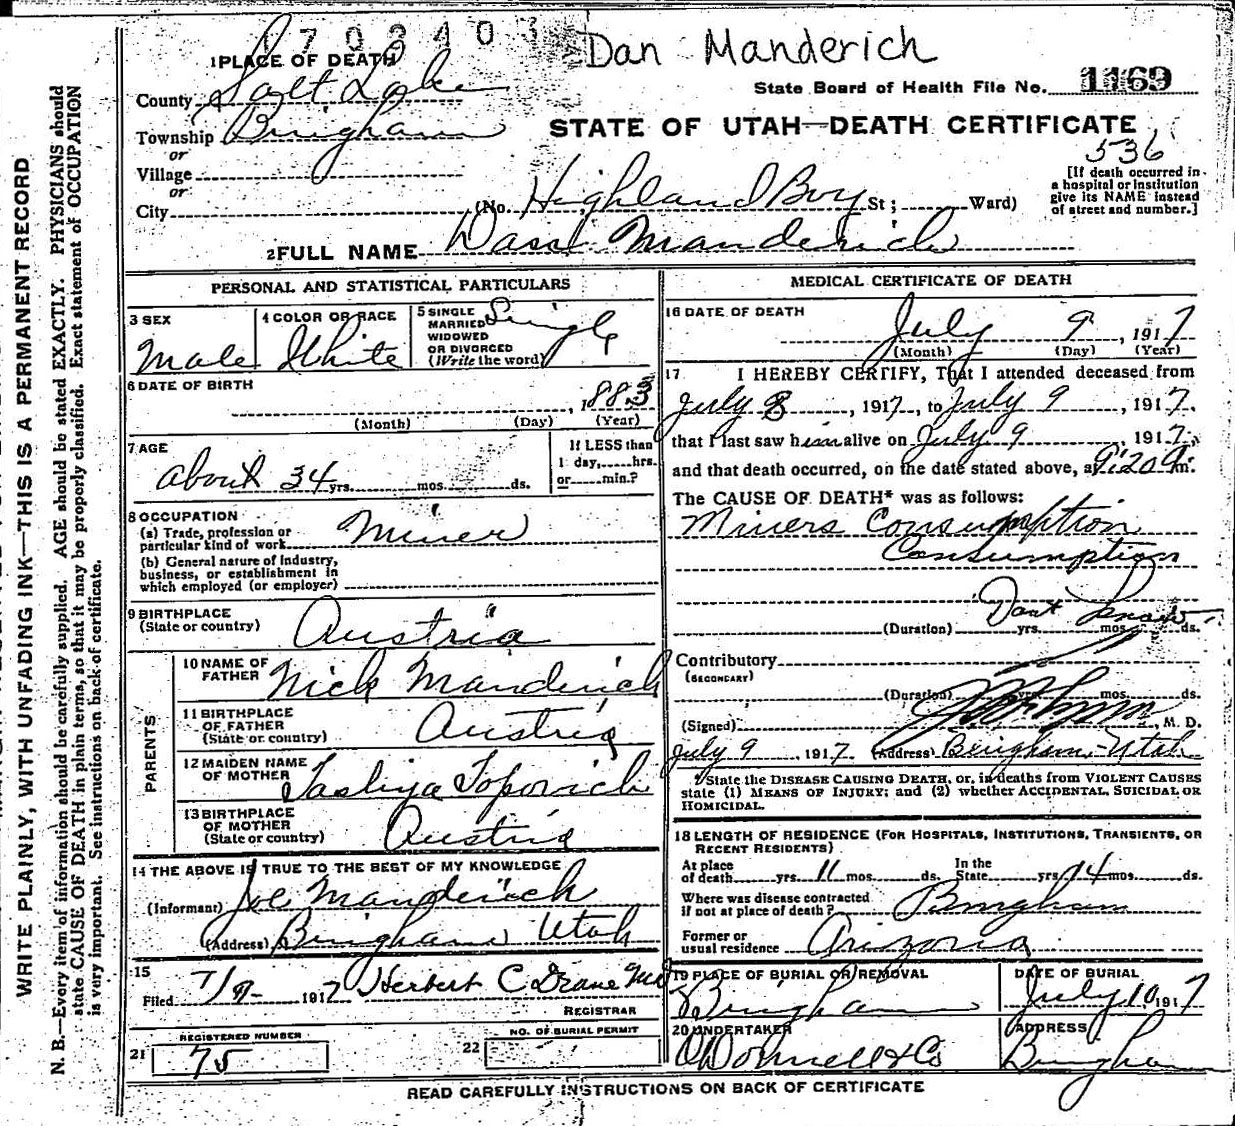 1702403
Dan Manderich
1 PLACE OF DEATH
State Board of Health File No. 1169
County Salt Lake
Township Bingham
STATE OF UTAH—DEATH CERTIFICATE
or
536
Village
[If death occurred in a hospital or institution give its NAME instead of street and number.]
or
City (No. Highland Boy St; Ward)
2 FULL NAME Manderich
PERSONAL AND STATISTICAL PARTICULARS
3 SEX
Male
4 COLOR OR RACE
White
5 SINGLE
MARRIED
WIDOWED
OR DIVORCED
(Write the word)
Single
6 DATE OF BIRTH
, 1883
(Month) (Day) (Year)
7 AGE
about 34 yrs. mos. ds.
If LESS than
1 day, hrs.
or min.?
8 OCCUPATION
(a) Trade, profession or
particular kind of work Miner
(b) General nature of industry,
business, or establishment in
which employed (or employer)
9 BIRTHPLACE
(State or country) Austria
PARENTS
10 NAME OF
FATHER Nick Manderich
11 BIRTHPLACE
OF FATHER
(State or country) Austria
12 MAIDEN NAME
OF MOTHER Topovich
13 BIRTHPLACE
OF MOTHER
(State or country) Austria
14 THE ABOVE IS TRUE TO THE BEST OF MY KNOWLEDGE
(Informant) Joe Manderich
(Address) Bingham Utah
15
Filed 7/9- 1917 Herbert C Drane MD
REGISTRAR
REGISTERED NUMBER
21 75
NO. OF BURIAL PERMIT
22
MEDICAL CERTIFICATE OF DEATH
16 DATE OF DEATH
July 9, 1917
(Month) (Day) (Year)
17 I HEREBY CERTIFY, That I attended deceased from
July 8, 1917, to July 9, 1917,
that I last saw him alive on July 9, 1917,
and that death occurred, on the date stated above, at 9:20 a m.
The CAUSE OF DEATH* was as follows:
Miners Consumption
Consumption
Dont Know
(Duration) yrs. mos. ds.
Contributory
(SECONDARY)
(Duration) yrs. mos. ds.
(Signed) , M. D.
July 9, 1917. (Address) Bingham, Utah
*State the DISEASE CAUSING DEATH, or, in deaths from VIOLENT CAUSES
state (1) MEANS OF INJURY; and (2) whether ACCIDENTAL, SUICIDAL OR
HOMICIDAL.
18 LENGTH OF RESIDENCE (FOR HOSPITALS, INSTITUTIONS, TRANSIENTS, OR
RECENT RESIDENTS)
At place
of death yrs. 11 mos. ds.
In the
State yrs. 14 mos. ds.
Where was disease contracted
if not at place of death? Bingham
Former or
usual residence Arizona
19 PLACE OF BURIAL OR REMOVAL
Bingham
DATE OF BURIAL
July 10 1917
20 UNDERTAKER
O'Donnell & Co
ADDRESS
Bingham
READ CAREFULLY INSTRUCTIONS ON BACK OF CERTIFICATE
WRITE PLAINLY, WITH UNFADING INK—THIS IS A PERMANENT RECORD
N. B.—Every item of information should be carefully supplied. AGE should be stated EXACTLY. PHYSICIANS should
state CAUSE OF DEATH in plain terms, so that it may be properly classified. Exact statement of OCCUPATION
is very important. See instructions on back of certificate.